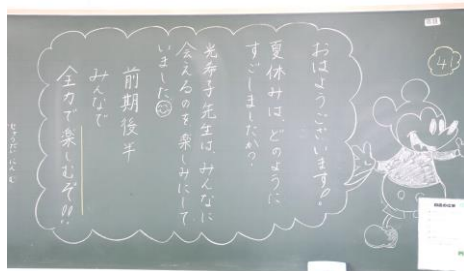 おはようございます!
夏休みは、どのように
すごしましたか?
光希子先生は、みんなに
会えるのを楽しみにして
いました
前期後半
みんなで
全力で楽しむぞ!!